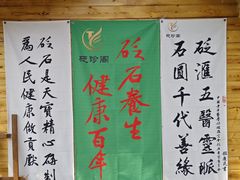 砭滙五醫靈脈
石圓千代善緣
砭珍阁
砭石養生
健康百年
砭石是天寶精心存制
為人民健康做貢獻